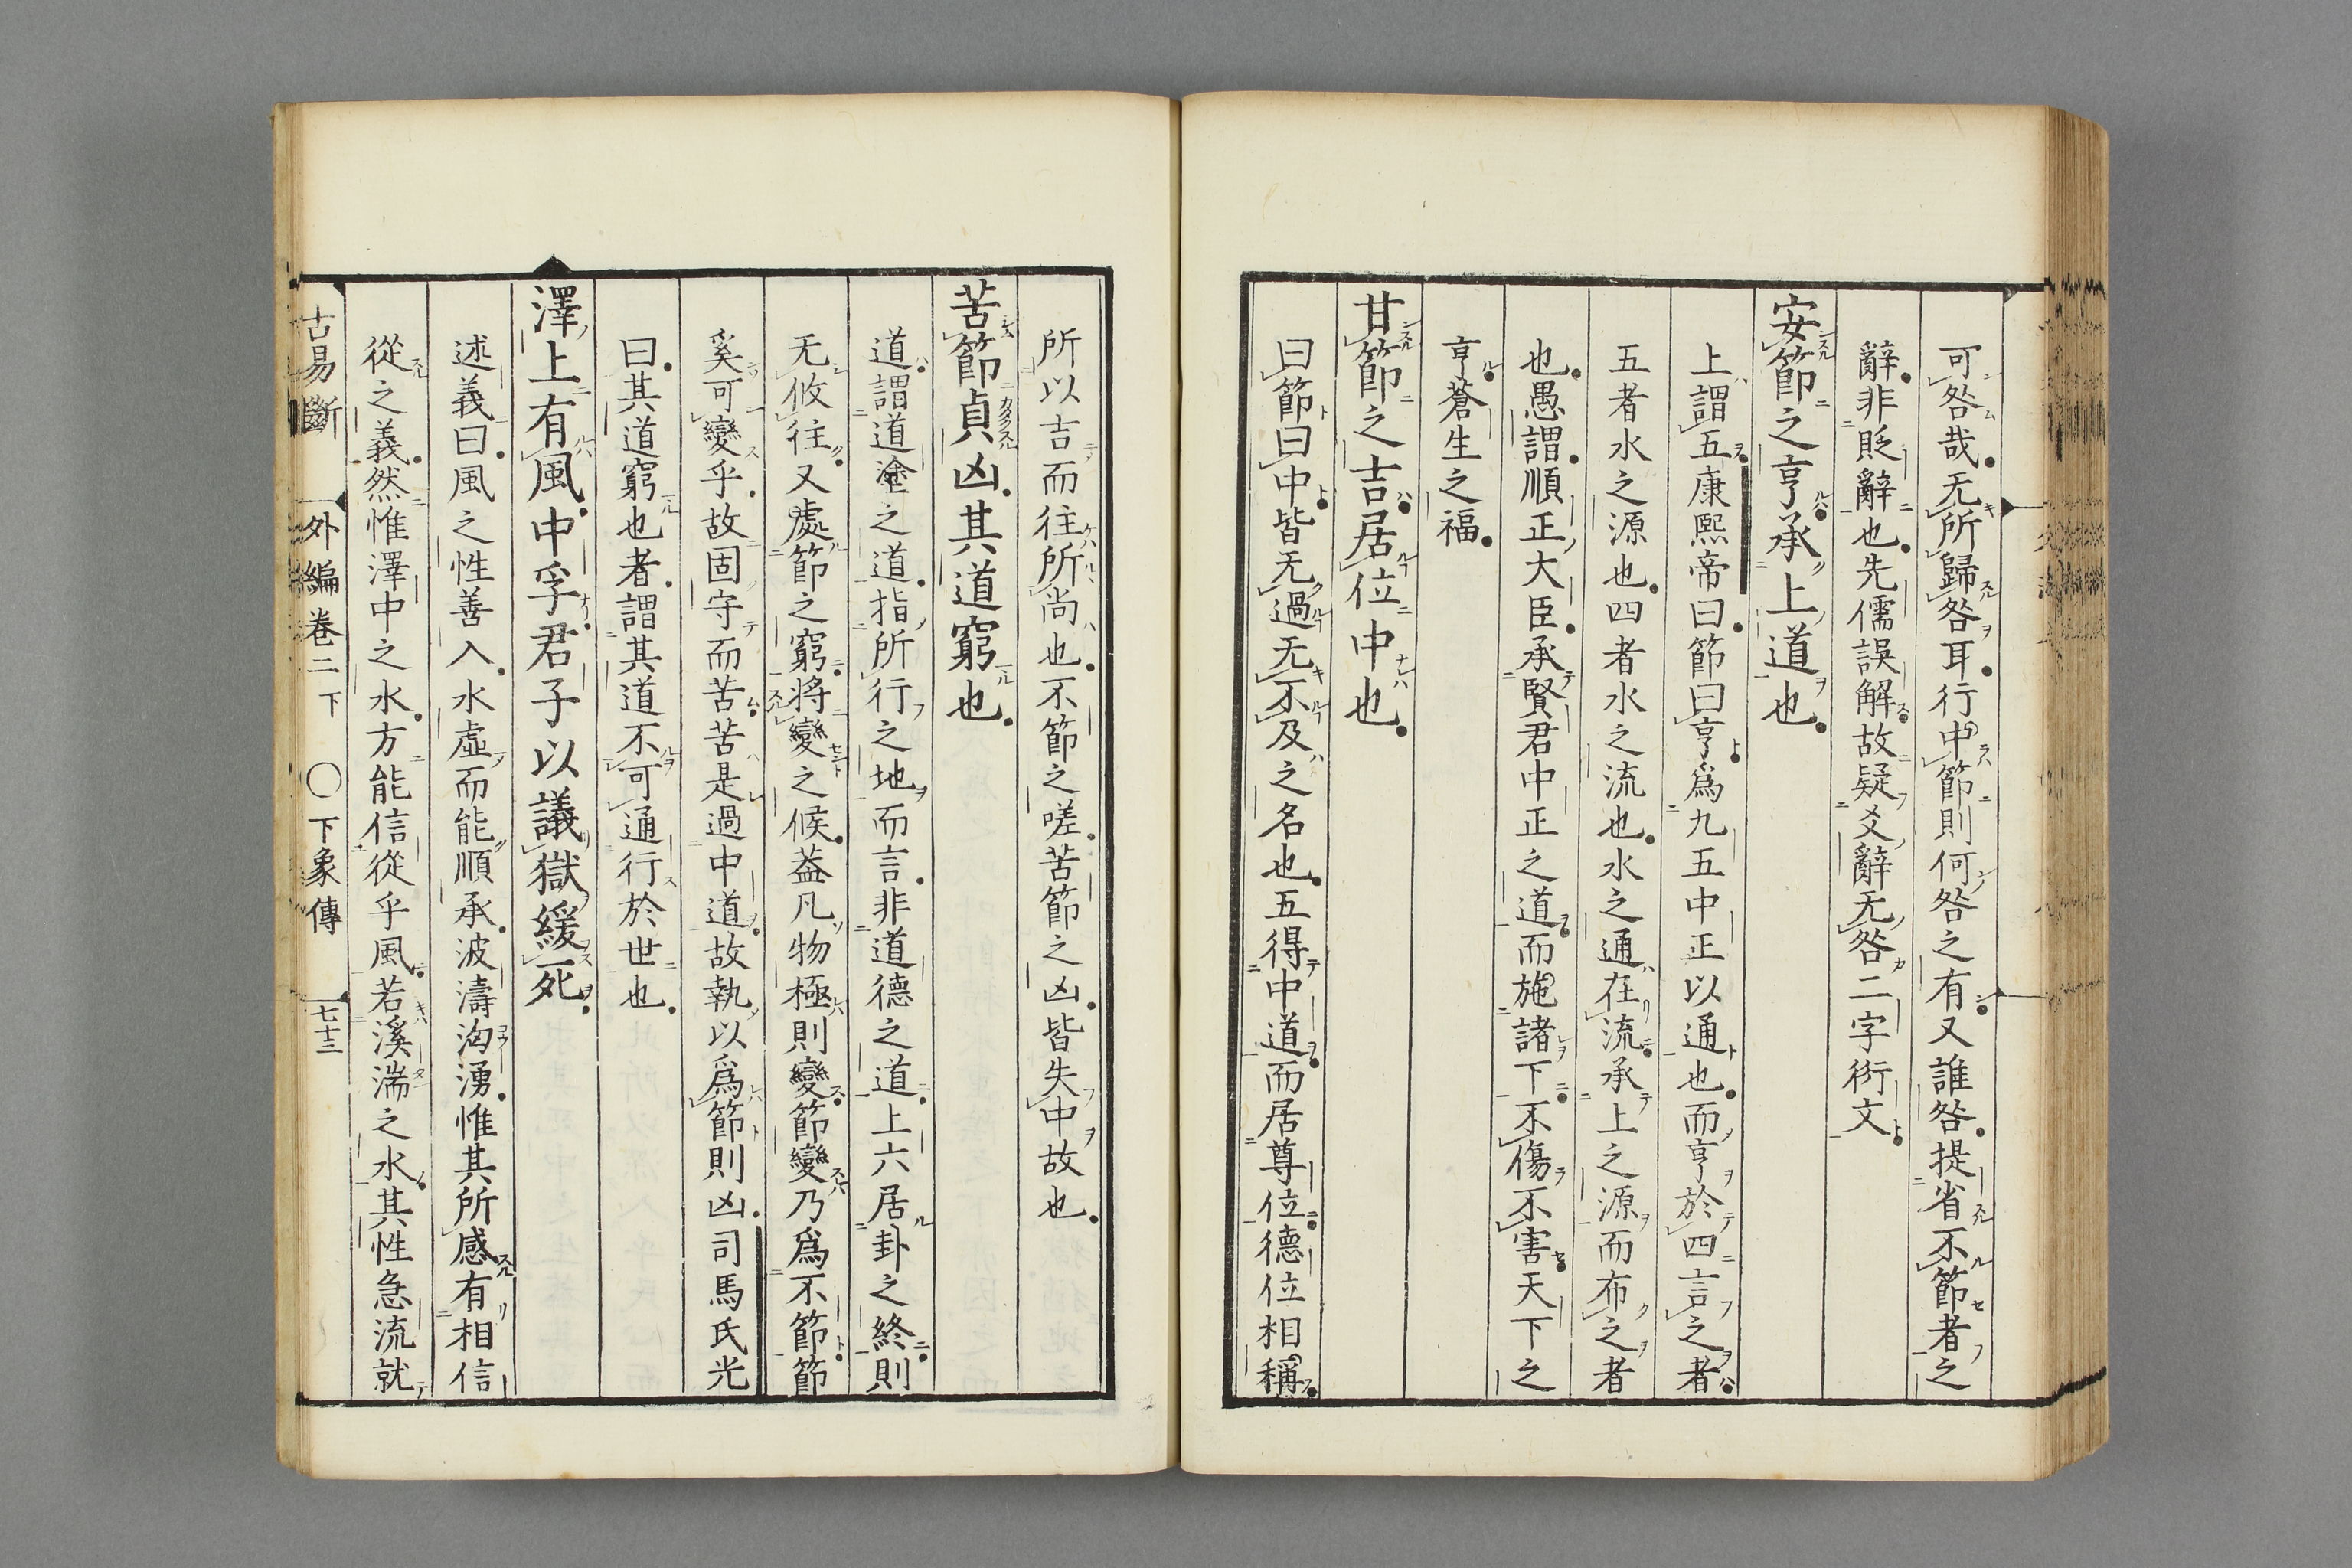 可咎哉无所歸咎耳行中節則何咎之有又誰咎提省不節者之
辭非貶辭也先儒誤解故疑爻辭无咎二字衍文
安節之亨承上道也
上謂五康熙帝曰節曰亨爲九五中正以通也而亨於四言之者
五者水之源也四者水之流也水之通在流承上之源而布之者
也愚謂順正大臣承賢君中正之道而施諸下不傷不害天下之
亨蒼生之福
甘節之吉居位中也
曰節曰中皆无過无不及之名也五得中道而居尊位德位相稱
所以吉而往所尚也不節之嗟苦節之凶皆失中故也
苦節貞凶其道窮也
道謂道塗之道指所行之地而言非道德之道上六居卦之終則
无攸往又處節之窮將變之候葢凡物極則變節變乃爲不節節
奚可變乎故固守而苦苦是過中道故執以爲節則凶司馬氏光
曰其道窮也者謂其道不可通行於世也
澤上有風中孚君子以議獄緩死
述義曰風之性善入水虛而能順承波濤洶湧惟其所感有相信
從之義然惟澤中之水方能信從乎風若溪湍之水其性急流就
古易斷 外編卷二下 ○下象傳 七十三